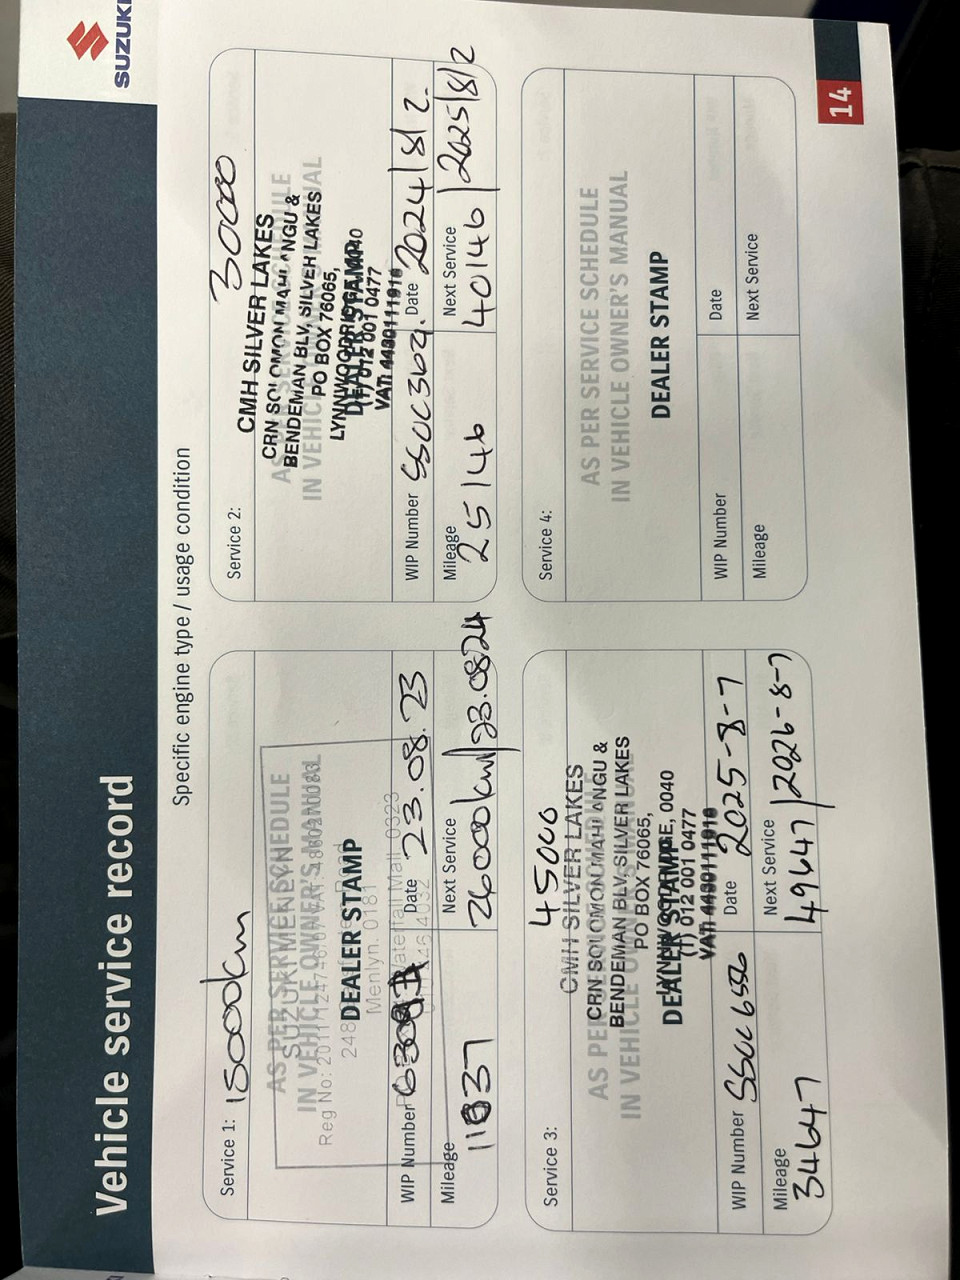 SUZUKI
Vehicle service record
Specific engine type / usage condition
Service 1: 15000km
AS PER SERVICE SCHEDULE
SUZUKI MENLYN
IN VEHICLE OWNER'S MANUAL
DEALER STAMP
Menlyn. 0181
WIP Number
Date 23.08.23
Mileage
11837
Next Service
26000km/23.0824
Service 2: 30000
CMH SILVER LAKES
CRN SOLOMON MAHLANGU &
BENDEMAN BLV, SILVER LAKES
PO BOX 76065,
LYNNWOODRIDGE, 0040
(T) 012 001 0477
VAT: 4430111916
AS PER SERVICE SCHEDULE
IN VEHICLE OWNER'S MANUAL
DEALER STAMP
WIP Number
Date 2024/8/2.
Mileage
25146
Next Service
40146/2025/8/2
Service 3: 45000
CMH SILVER LAKES
CRN SOLOMON MAHLANGU &
BENDEMAN BLV, SILVER LAKES
PO BOX 76065,
LYNNWOODRIDGE, 0040
(T) 012 001 0477
VAT: 4430111916
AS PER SERVICE SCHEDULE
IN VEHICLE OWNER'S MANUAL
DEALER STAMP
WIP Number
Date 2025-8-7
Mileage
34647
Next Service
49647/2026-8-7
Service 4:
AS PER SERVICE SCHEDULE
IN VEHICLE OWNER'S MANUAL
DEALER STAMP
WIP Number
Date
Mileage
Next Service
14